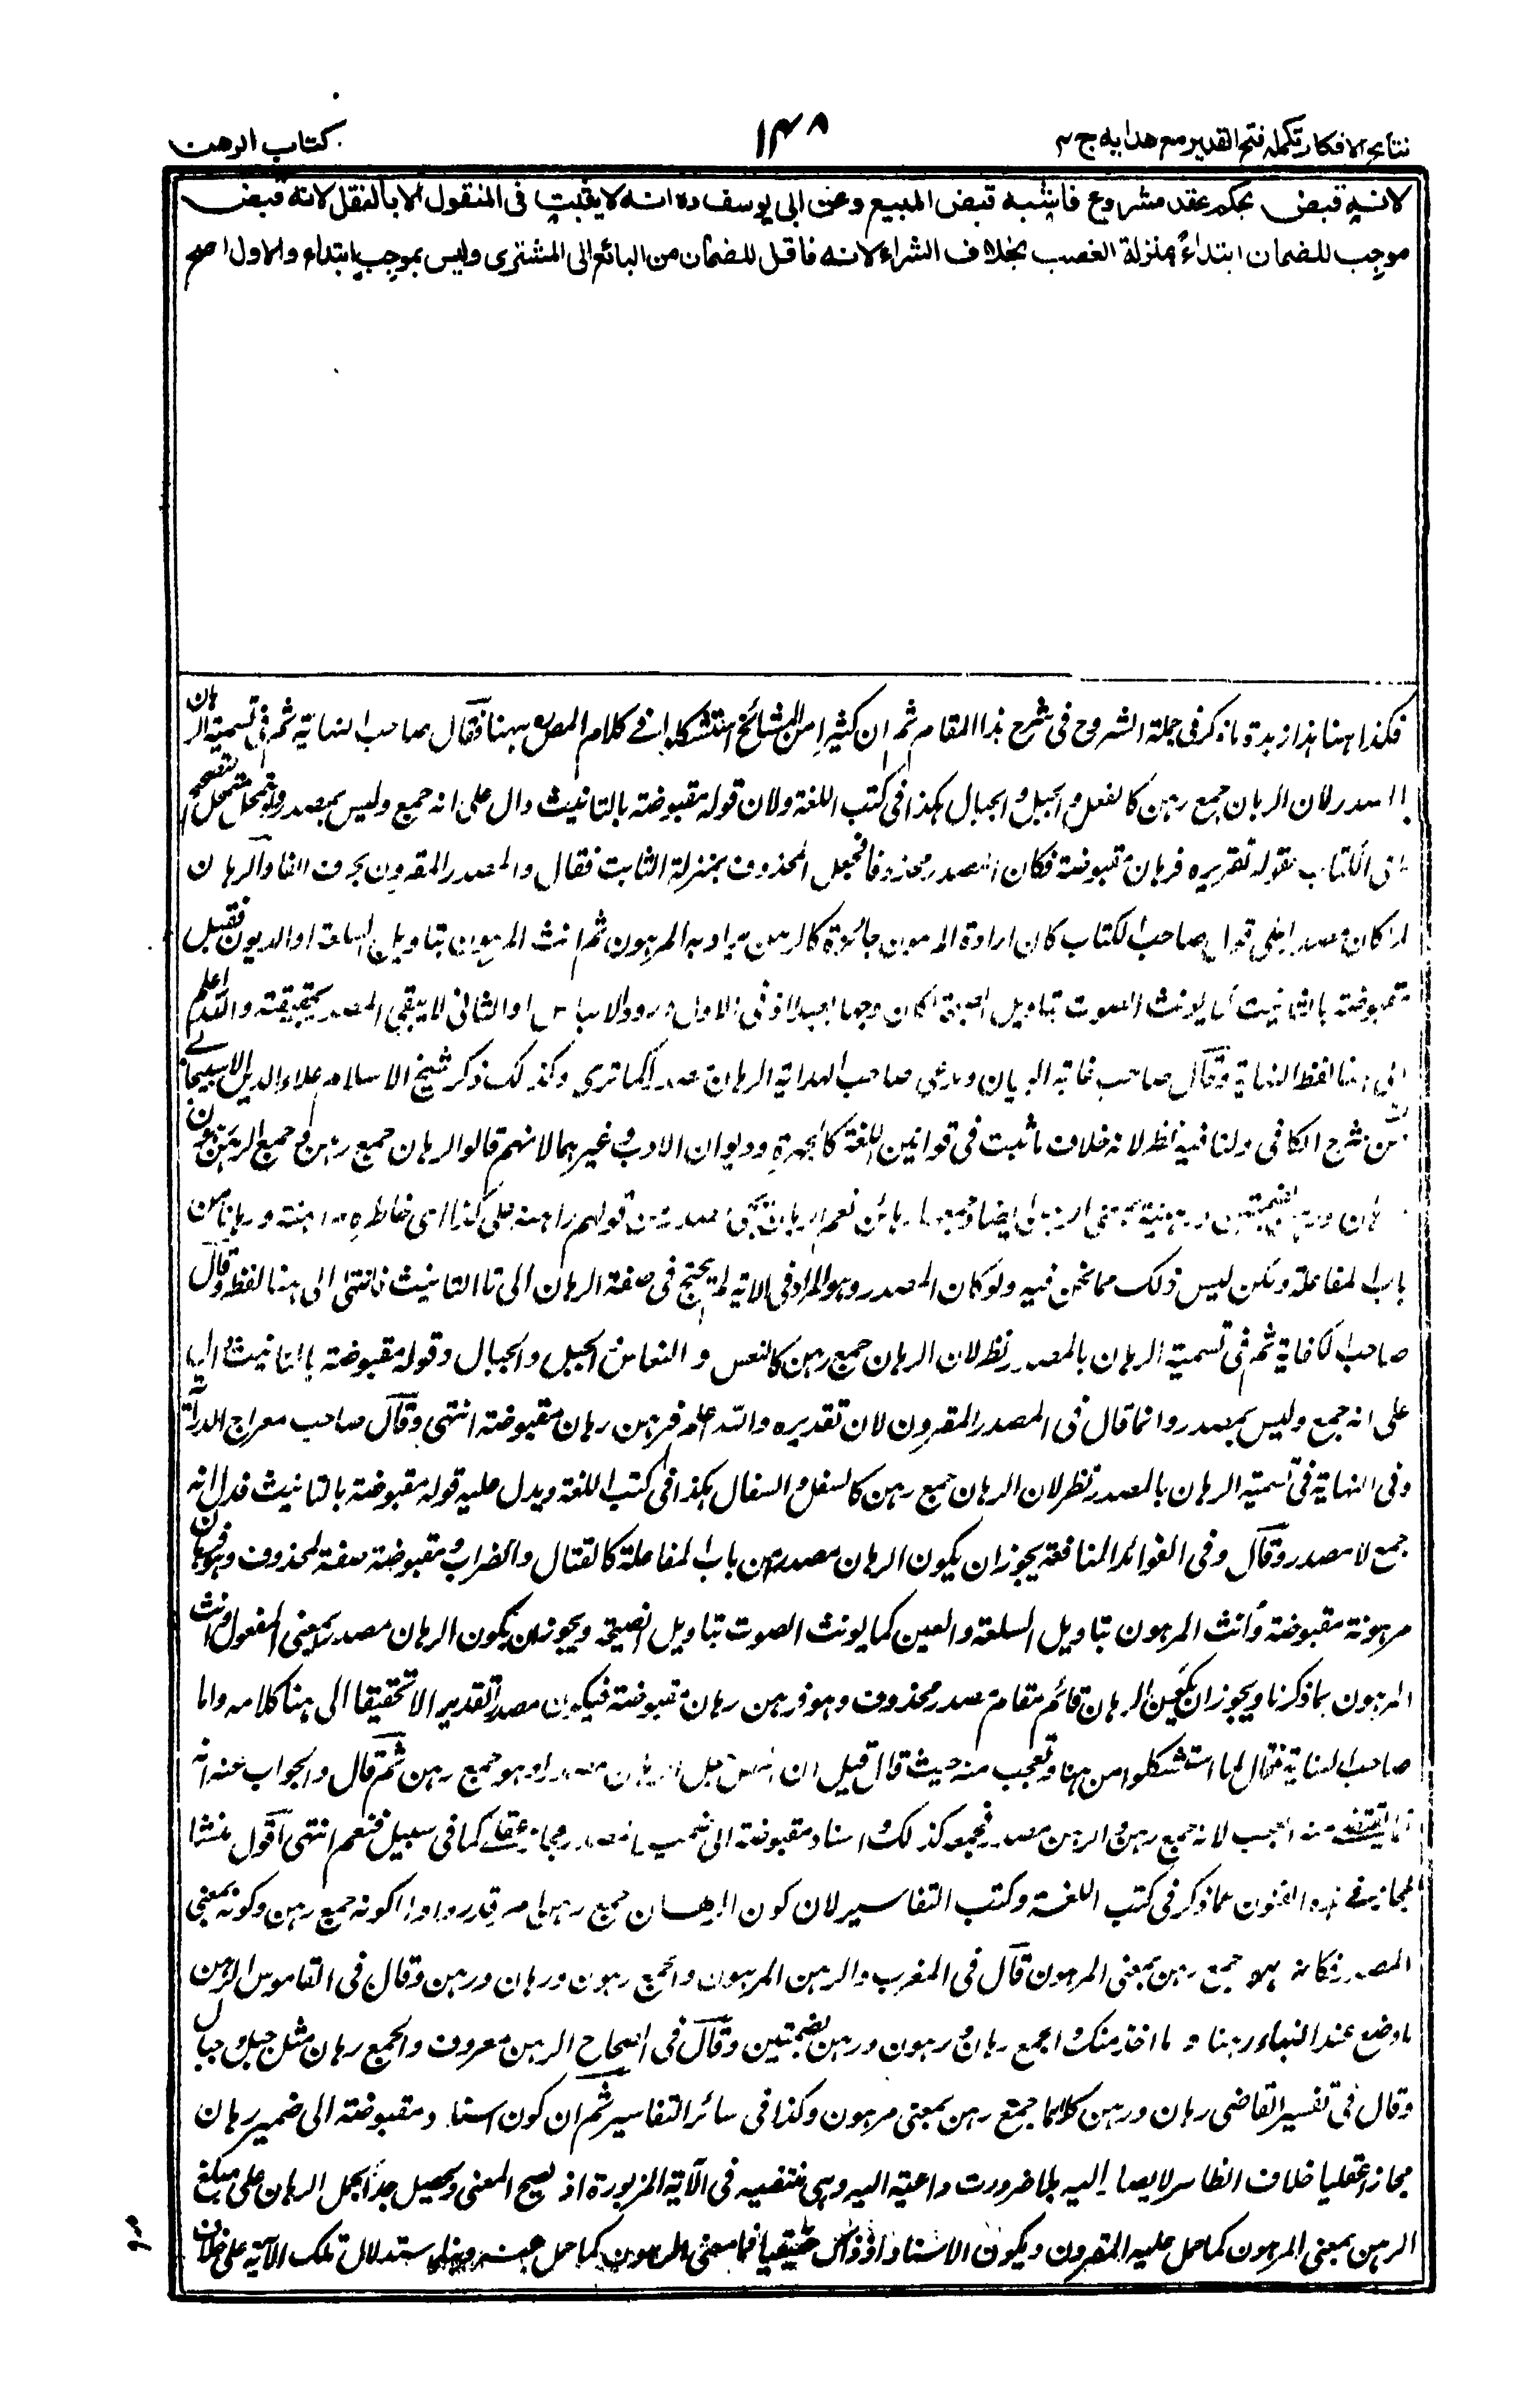 نتائج الافكار تكملہ فتح القدير مع هدايه ج ٤
١٤٨
كتاب الرهن
لانه قبض بحكم عقد مشروع فاشبه قبض المبيع وعن ابى يوسف ره انه لا يثبت فى المنقول الا بالنقل لانه قبض
موجب للضمان ابتداءً بمنزلة الغصب بخلاف الشراء لانه ناقل للضمان من البائع الى المشترى وليس بموجب ابتداء والاول اصح
فكذا ههنا هذا زبدة ما ذكر فى جملة الشروح فى شرح هذا المقام ثم ان كثيرا من المشائخ استشكلوا فى كلام المص ههنا فقال صاحب النهاية ثم فى تسمية الرهان
بالمصدر لان الرهان جمع رهن كالنعل والجبل والجبال هكذا فى كتب اللغة ولان قوله مقبوضة بالتانيث دال على انه جمع وليس بمصدر ولو تمحل متمحل
فى الكتاب بقوله تقريره فرهان مقبوضة فكان المصدر محذوفا فجعل المحذوف بمنزلة الثابت فقال والمصدر المقرون بحرف الفاء والرهان
كان مصدرا على قول صاحب الكتاب كان ارادة المرهون جائزة كالرهن يراد به المرهون ثم انث المرهون بتاويل السلعة او الديون فقيل
مقبوضة بالتانيث كما يونث الصوت بتاويل الصيحة لكان وجها بعيدا اذ فى الاول ورود الالباس والثانى لا يبقى المصدر بحقيقته والله اعلم
الى هنا لفظ النهاية وقال صاحب غاية البيان ومدعى صاحب الهداية الرهان مصدر كما ترى وكذلك ذكر شيخ الاسلام علاء الدين الاسبيجابى
فى شرح الكافى ولنا فيه نظر لانه خلاف ما ثبت فى قوانين اللغة كالجمهرة وديوان الادب وغيرهما لانهم قالوا الرهان جمع رهن وجمع الرهن رهون
ورهان ورهن بضمتين ورهينة بمعنى الرهن ايضا وجمعها رهائن نعم الرهان يجئ مصدرا من قولهم راهنه على كذا اى خاطره مراهنة ورهانا من
باب المفاعلة ولكن ليس ذلك مما نحن فيه ولو كان المصدر هو المراد فى الاية لم يحتج فى صفة الرهان الى تاء التانيث فانتهى الى هنا لفظه وقال
صاحب الكفاية ثم فى تسمية الرهان بالمصدر نظر لان الرهان جمع رهن كالنعل والنعال والجبل والجبال وقوله مقبوضة بالتانيث دال
على انه جمع وليس بمصدر وانما قال فى المصدر المقرون لان تقديره والله اعلم فرهن رهان مقبوضة انتهى وقال صاحب معراج الدراية
وفى النهاية فى تسمية الرهان بالمصدر نظر لان الرهان جمع رهن كالسفل والسفال هكذا فى كتب اللغة ويدل عليه قوله مقبوضة بالتانيث فدل انه
جمع لا مصدر وقال وفى الفوائد النافعة يجوز ان يكون الرهان مصدرا من باب المفاعلة كالقتال والضراب ومقبوضة صفة لمحذوف وهو فرهان
مرهونة مقبوضة وانث المرهون بتاويل السلعة والعين كما يونث الصوت بتاويل الصيحة ويجوز ان يكون الرهان مصدرا بمعنى المفعول وانث
المرهون بما ذكرنا ويجوز ان يكون الرهان قائم مقام مصدر محذوف وهو فرهن رهان مقبوضة فيكون مصدرا تقديرا لا تحقيقا الى هنا كلامه واما
صاحب العناية فقال لما استشكلوا من هنا وتعجب منه حيث قال قيل ان المص جعل الرهان مصدرا وهو جمع رهن ثم قال والجواب عنه انه
منه العجب لانه جمع رهن والرهن مصدر فجمعه كذلك واسناد مقبوضة الى ضمير المصدر مجاز عقلى كما فى سبيل مفعم انتهى اقول
هذه الفنون عما ذكر فى كتب اللغة وكتب التفاسير لان كون الرهان جمع رهن كونه جمع رهن وكونه بمعنى
المصدر فكانه هو جمع رهن بمعنى المرهون قال فى المغرب والرهن المرهون والجمع رهون ورهان ورهن وقال فى القاموس الرهن
ما وضع عندك لينوب مناب ما اخذ منك والجمع رهان ورهون ورهن بضمتين وقال فى الصحاح الرهن معروف والجمع رهان مثل حبل وحبال
وقال فى تفسير القاضى رهان ورهن كلاهما جمع رهن بمعنى مرهون وكذا فى سائر التفاسير ثم ان كون اسناد مقبوضة الى ضمير رهان
مجازا عقليا خلاف الظاهر لا يصار اليه بلا ضرورت داعية اليه وهى منتفية فى الآية المزبورة اذ يصح المعنى ويحصل جدا بحمل الرهان على جمع
الرهن بمعنى المرهون كما حمل عليه المفسرون ويكون الاسناد اذ ذاك حقيقيا استدلال بتلك الآية على خلاف